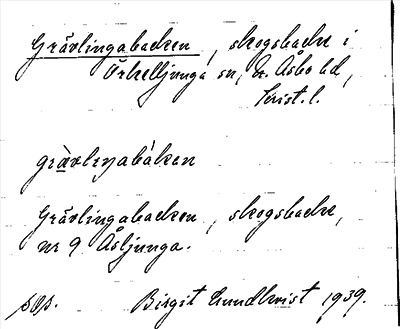 Grävlingabacken, skogsbacke i
Örkelljunga sn, N. Åsbo hd,
Krist. l.
grävlıŋabákən
Grävlingabacken, skogsbacke,
nr 9 Åsljunga.
pop. Birgit Lundkvist 1939.